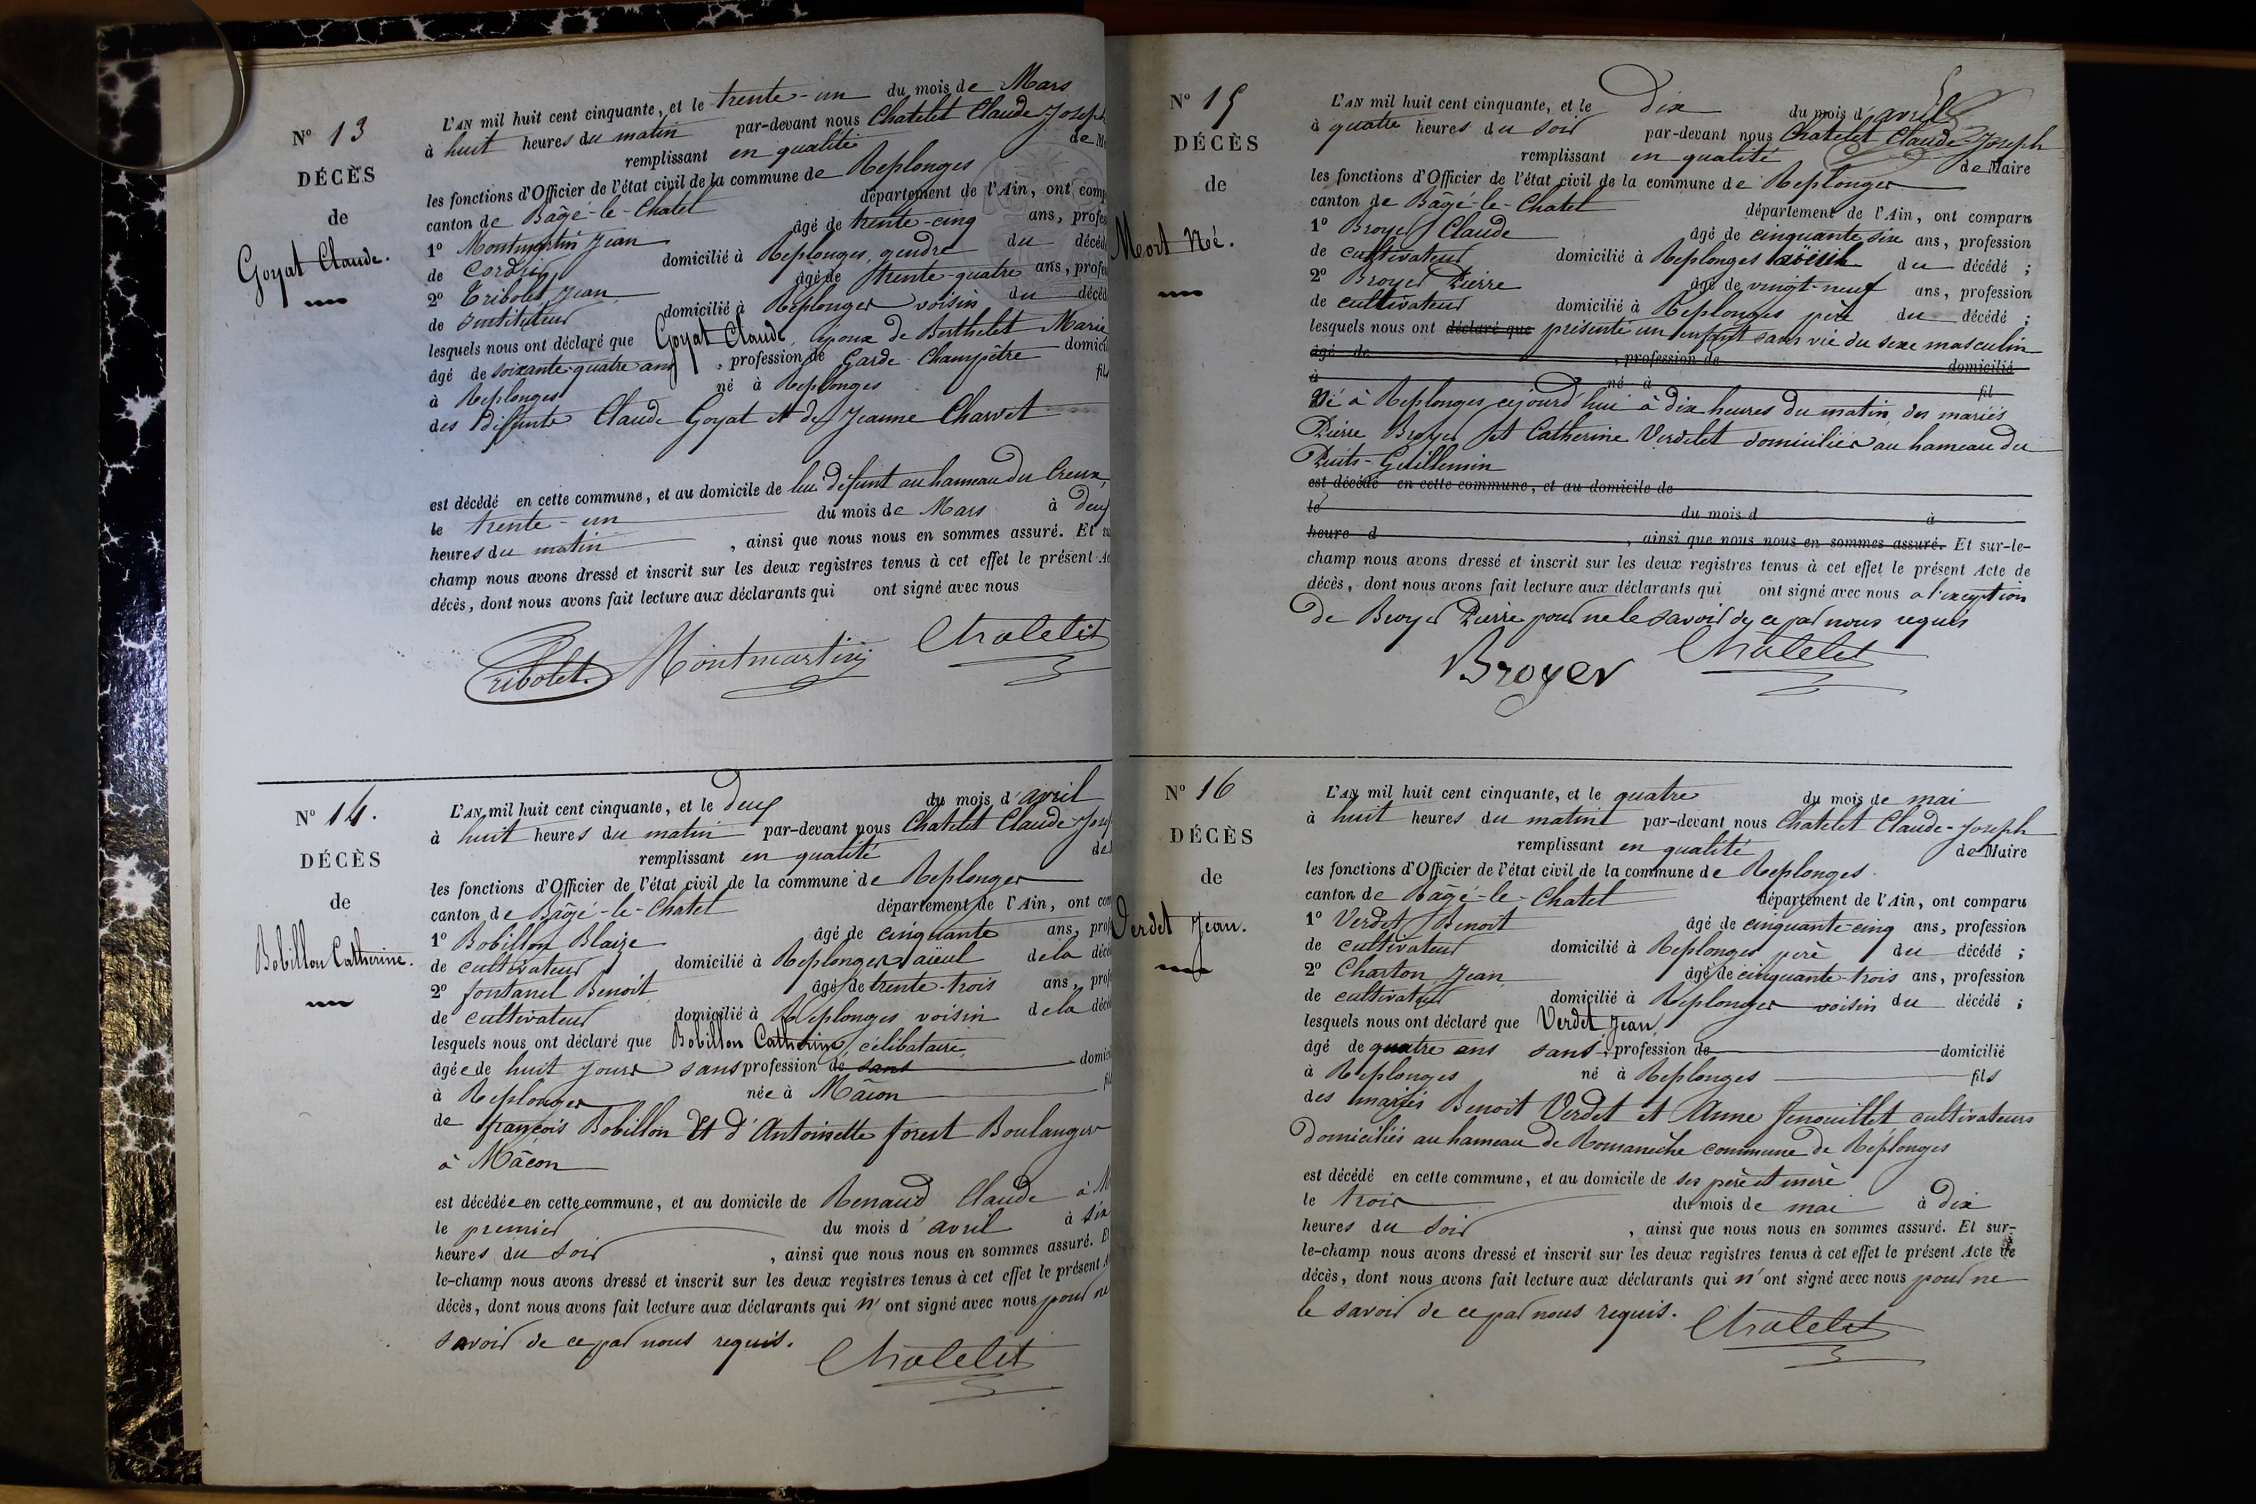 N° 13
DÉCÈS
de
Goyat Claude.
L'AN mil huit cent cinquante, et le trente-un du mois de Mars
à huit heures du matin par-devant nous Chatelet Claude Joseph
remplissant en qualité de
les fonctions d'Officier de l'état civil de la commune de Replonges
canton de Bâgé-le-Chatel département de l'Ain, ont comp
1° Montmartin Jean âgé de trente-cinq ans, profes
de cordier domicilié à Replonges, gendre du décédé
2° Tribolet Jean âgé de trente quatre ans, profes
de instituteur domicilié à Replonges voisin du décéd
lesquels nous ont déclaré que Goyat Claude, époux de Berthelet Marie
âgé de soixante-quatre ans, profession de Garde-Champêtre domici
à Replonges né à Replonges fils
des défunts Claude Goyat et de Jeanne Charvet
est décédé en cette commune, et au domicile de lui défunt au hameau du Creux,
le trente-un du mois de Mars à deux
heures du matin, ainsi que nous nous en sommes assuré. Et su
champ nous avons dressé et inscrit sur les deux registres tenus à cet effet le présent Ac
décès, dont nous avons fait lecture aux déclarants qui ont signé avec nous
Tribolet. Montmartin Chatelet
N° 14.
DÉCÈS
de
Bobillon Catherine.
L'AN mil huit cent cinquante, et le deux du mois d'avril
à huit heures du matin par-devant nous Chatelet Claude-Jose
remplissant en qualité de
les fonctions d'Officier de l'état civil de la commune de Replonges
canton de Bâgé-le-Chatel département de l'Ain, ont com
1° Bobillon Blaize âgé de cinquante ans, prof
de cultivateur domicilié à Replonges aïeul de la décé
2° fontanel Benoit âgé de trente-trois ans, prof
de cultivateur domicilié à Replonges voisin de la décé
lesquels nous ont déclaré que Bobillon Catherine, célibataire,
âgée de huit jours sans profession de sans domici
à Replonges née à Mâcon fil
de françois Bobillon Et d'Antoinette forest Boulanger
à Mâcon
est décédée en cette commune, et au domicile de Renaud Claude à
le premier du mois d'avril à six
heures du soir, ainsi que nous nous en sommes assuré. E
le-champ nous avons dressé et inscrit sur les deux registres tenus à cet effet le présent
décès, dont nous avons fait lecture aux déclarants qui n'ont signé avec nous pour ne
savoir de ce par nous requis.
Chatelet
N° 15
DÉCÈS
de
Mort Né.
L'AN mil huit cent cinquante, et le Dix du mois d'avril
à quatre heures du soir par-devant nous Chatelet Claude-Joseph
remplissant en qualité de Maire
les fonctions d'Officier de l'état civil de la commune de Replonges
canton de Bâgé-le-Chatel département de l'Ain, ont comparu
1° Broyer Claude âgé de cinquante six ans, profession
de cultivateur domicilié à Replonges aïeul du décédé ;
2° Broyer Pierre âgé de vingt-neuf ans, profession
de cultivateur domicilié à Replonges père du décédé ;
lesquels nous ont déclaré que présenté un enfant sans vie du sexe masculin
âgé de , profession de domicilié
à né à fil
Né à Replonges cejourd'hui à dix heures du matin, des mariés
Pierre Broyer et Catherine Verdelet domiciliés au hameau du
Puits-Guillemin
est décédé en cette commune, et au domicile de
le du mois d à
heure d , ainsi que nous nous en sommes assuré. Et sur-le-
champ nous avons dressé et inscrit sur les deux registres tenus à cet effet le présent Acte de
décès, dont nous avons fait lecture aux déclarants qui ont signé avec nous a l'exception
de Broyer Pierre pour ne le savoir de ce par nous requis
Broyer Chatelet
N° 16
DÉCÈS
de
Verdet Jean.
L'AN mil huit cent cinquante, et le quatre du mois de mai
à huit heures du matin par-devant nous Chatelet Claude-Joseph
remplissant en qualité de Maire
les fonctions d'Officier de l'état civil de la commune de Replonges
canton de Bâgé-le-Chatel département de l'Ain, ont comparu
1° Verdet Benoit âgé de cinquante-cinq ans, profession
de cultivateur domicilié à Replonges père du décédé ;
2° Charton Jean âgé de cinquante-trois ans, profession
de cultivateur domicilié à Replonges voisin du décédé ;
lesquels nous ont déclaré que Verdet Jean,
âgé de quatre ans sans, profession de domicilié
à Replonges né à Replonges fils
des mariés Benoit Verdet et Anne fenouillet cultivateurs
domiciliés au hameau de Romanèche commune de Replonges
est décédé en cette commune, et au domicile de ses père et mère
le trois du mois de mai à dix
heures du soir, ainsi que nous nous en sommes assuré. Et sur-
le-champ nous avons dressé et inscrit sur les deux registres tenus à cet effet le présent Acte de
décès, dont nous avons fait lecture aux déclarants qui n'ont signé avec nous pour ne
le savoir de ce par nous requis.
Chatelet